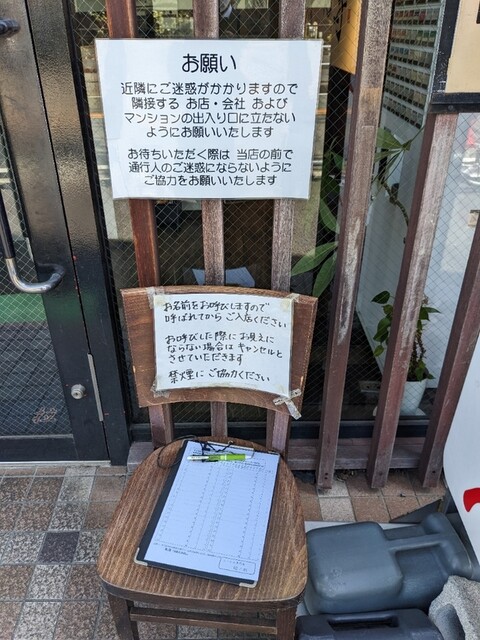 お願い
近隣にご迷惑がかかりますので
隣接する お店・会社 および
マンションの出入り口に立たない
ようにお願いいたします
お待ちいただく際は 当店の前で
通行人のご迷惑にならないように
ご協力をお願いいたします
お名前をお呼びしますので
呼ばれてから ご入店ください
お呼びした際に お見えに
ならない場合は キャンセルと
させていただきます
禁煙に ご協力ください